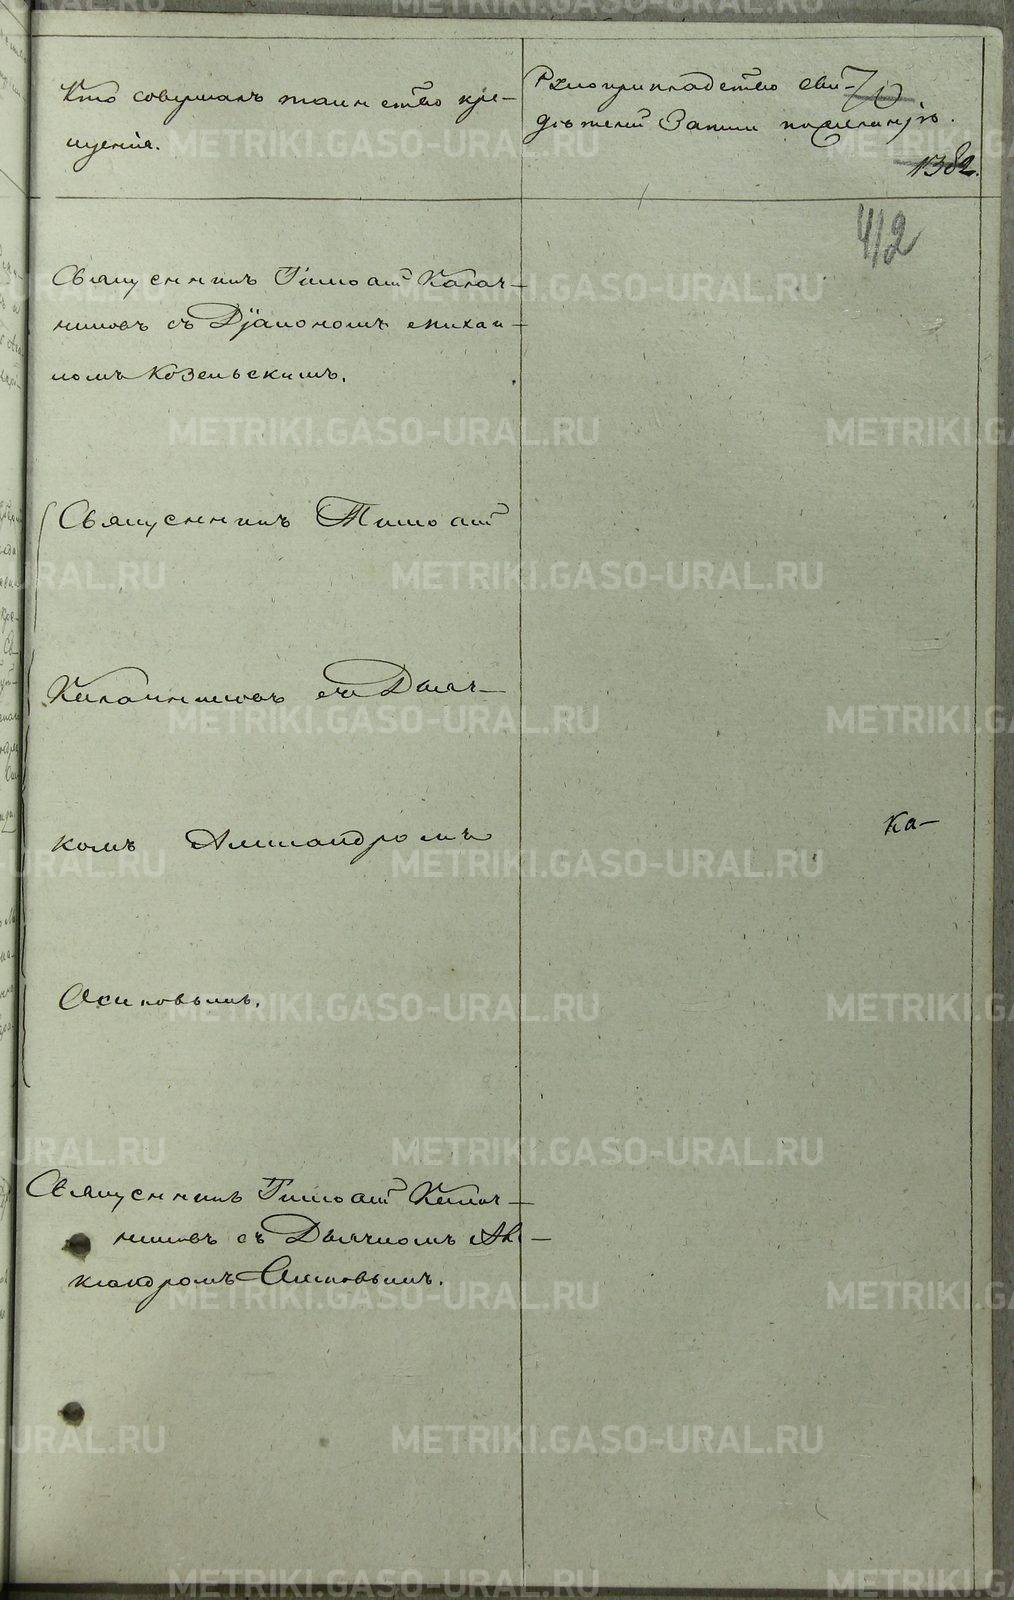 Кто совершалъ таинство кре-
щенія.
Рукоприкладство сви-
дѣтелей записи по желанію.
70
1382.
412
Священникъ Тимоѳей Калач-
никовъ съ Діакономъ
Козельскимъ.
Священникъ Тимоѳей
Калачниковъ съ Дьяч-
комъ Александромъ
Осиповымъ.
ка-
Священникъ Тимоѳей Калач-
никовъ съ Дьячкомъ Але-
ксандромъ Осиповымъ.
METRIKI.GASO-URAL.RU